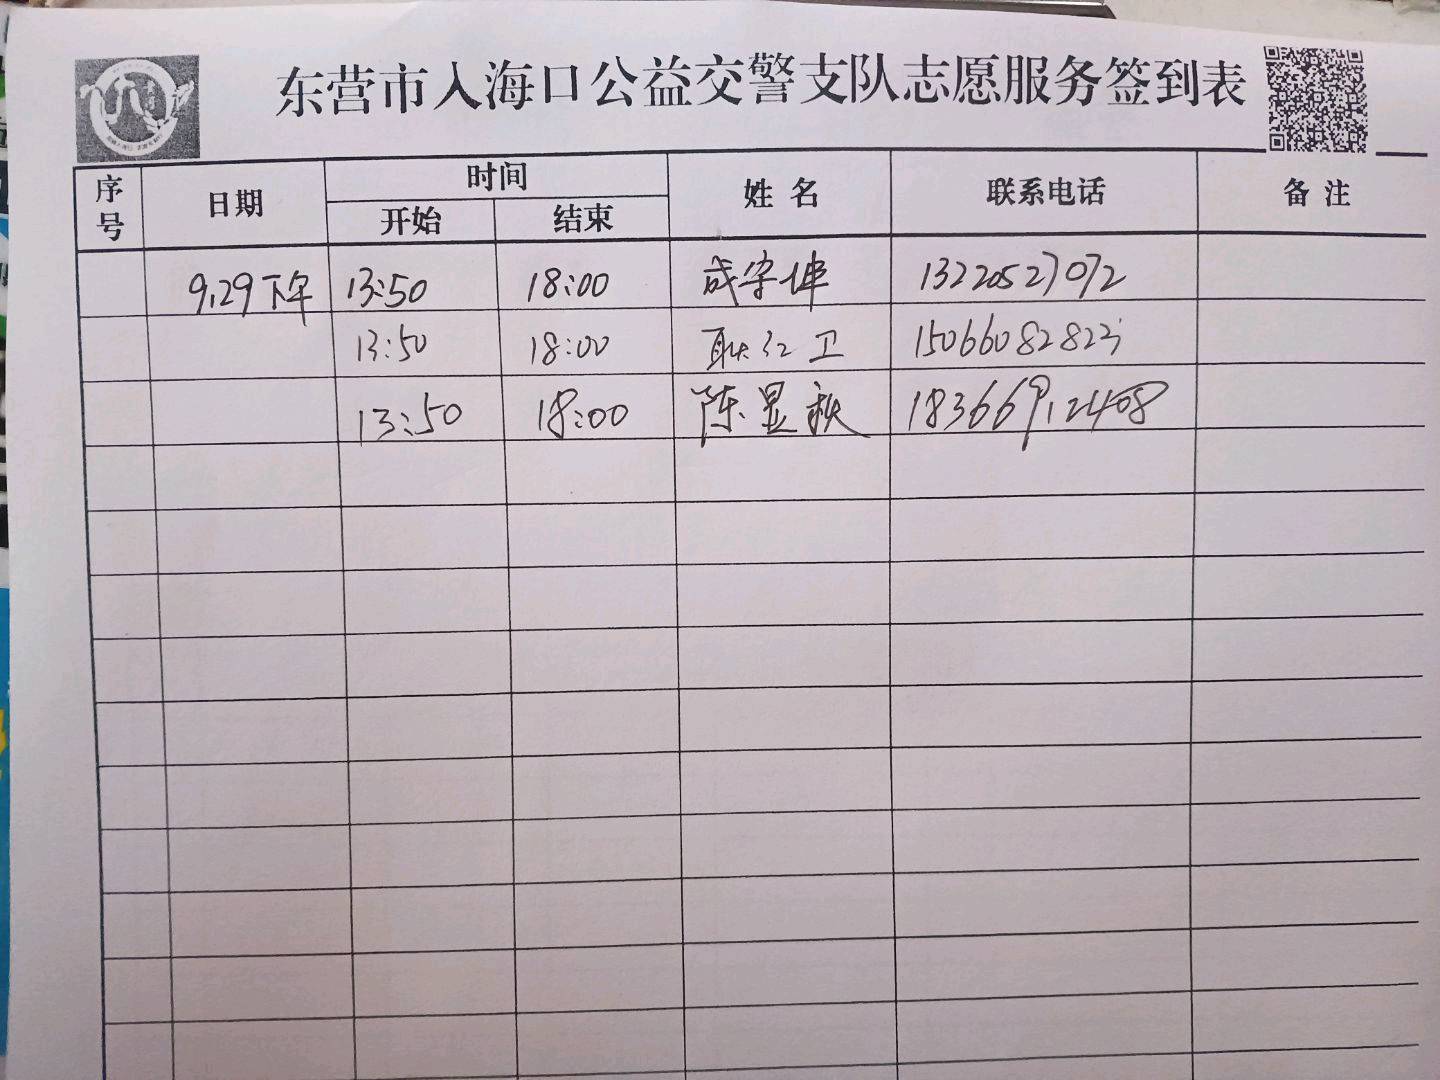 东营市入海口公益交警支队志愿服务签到表
序号 日期 时间 姓名 联系电话 备注
开始 结束
9.29下午 13:50 18:00 成宇坤 13220527072
13:50 18:00 耿红卫
13:50 18:00 陈显秋 18366912408